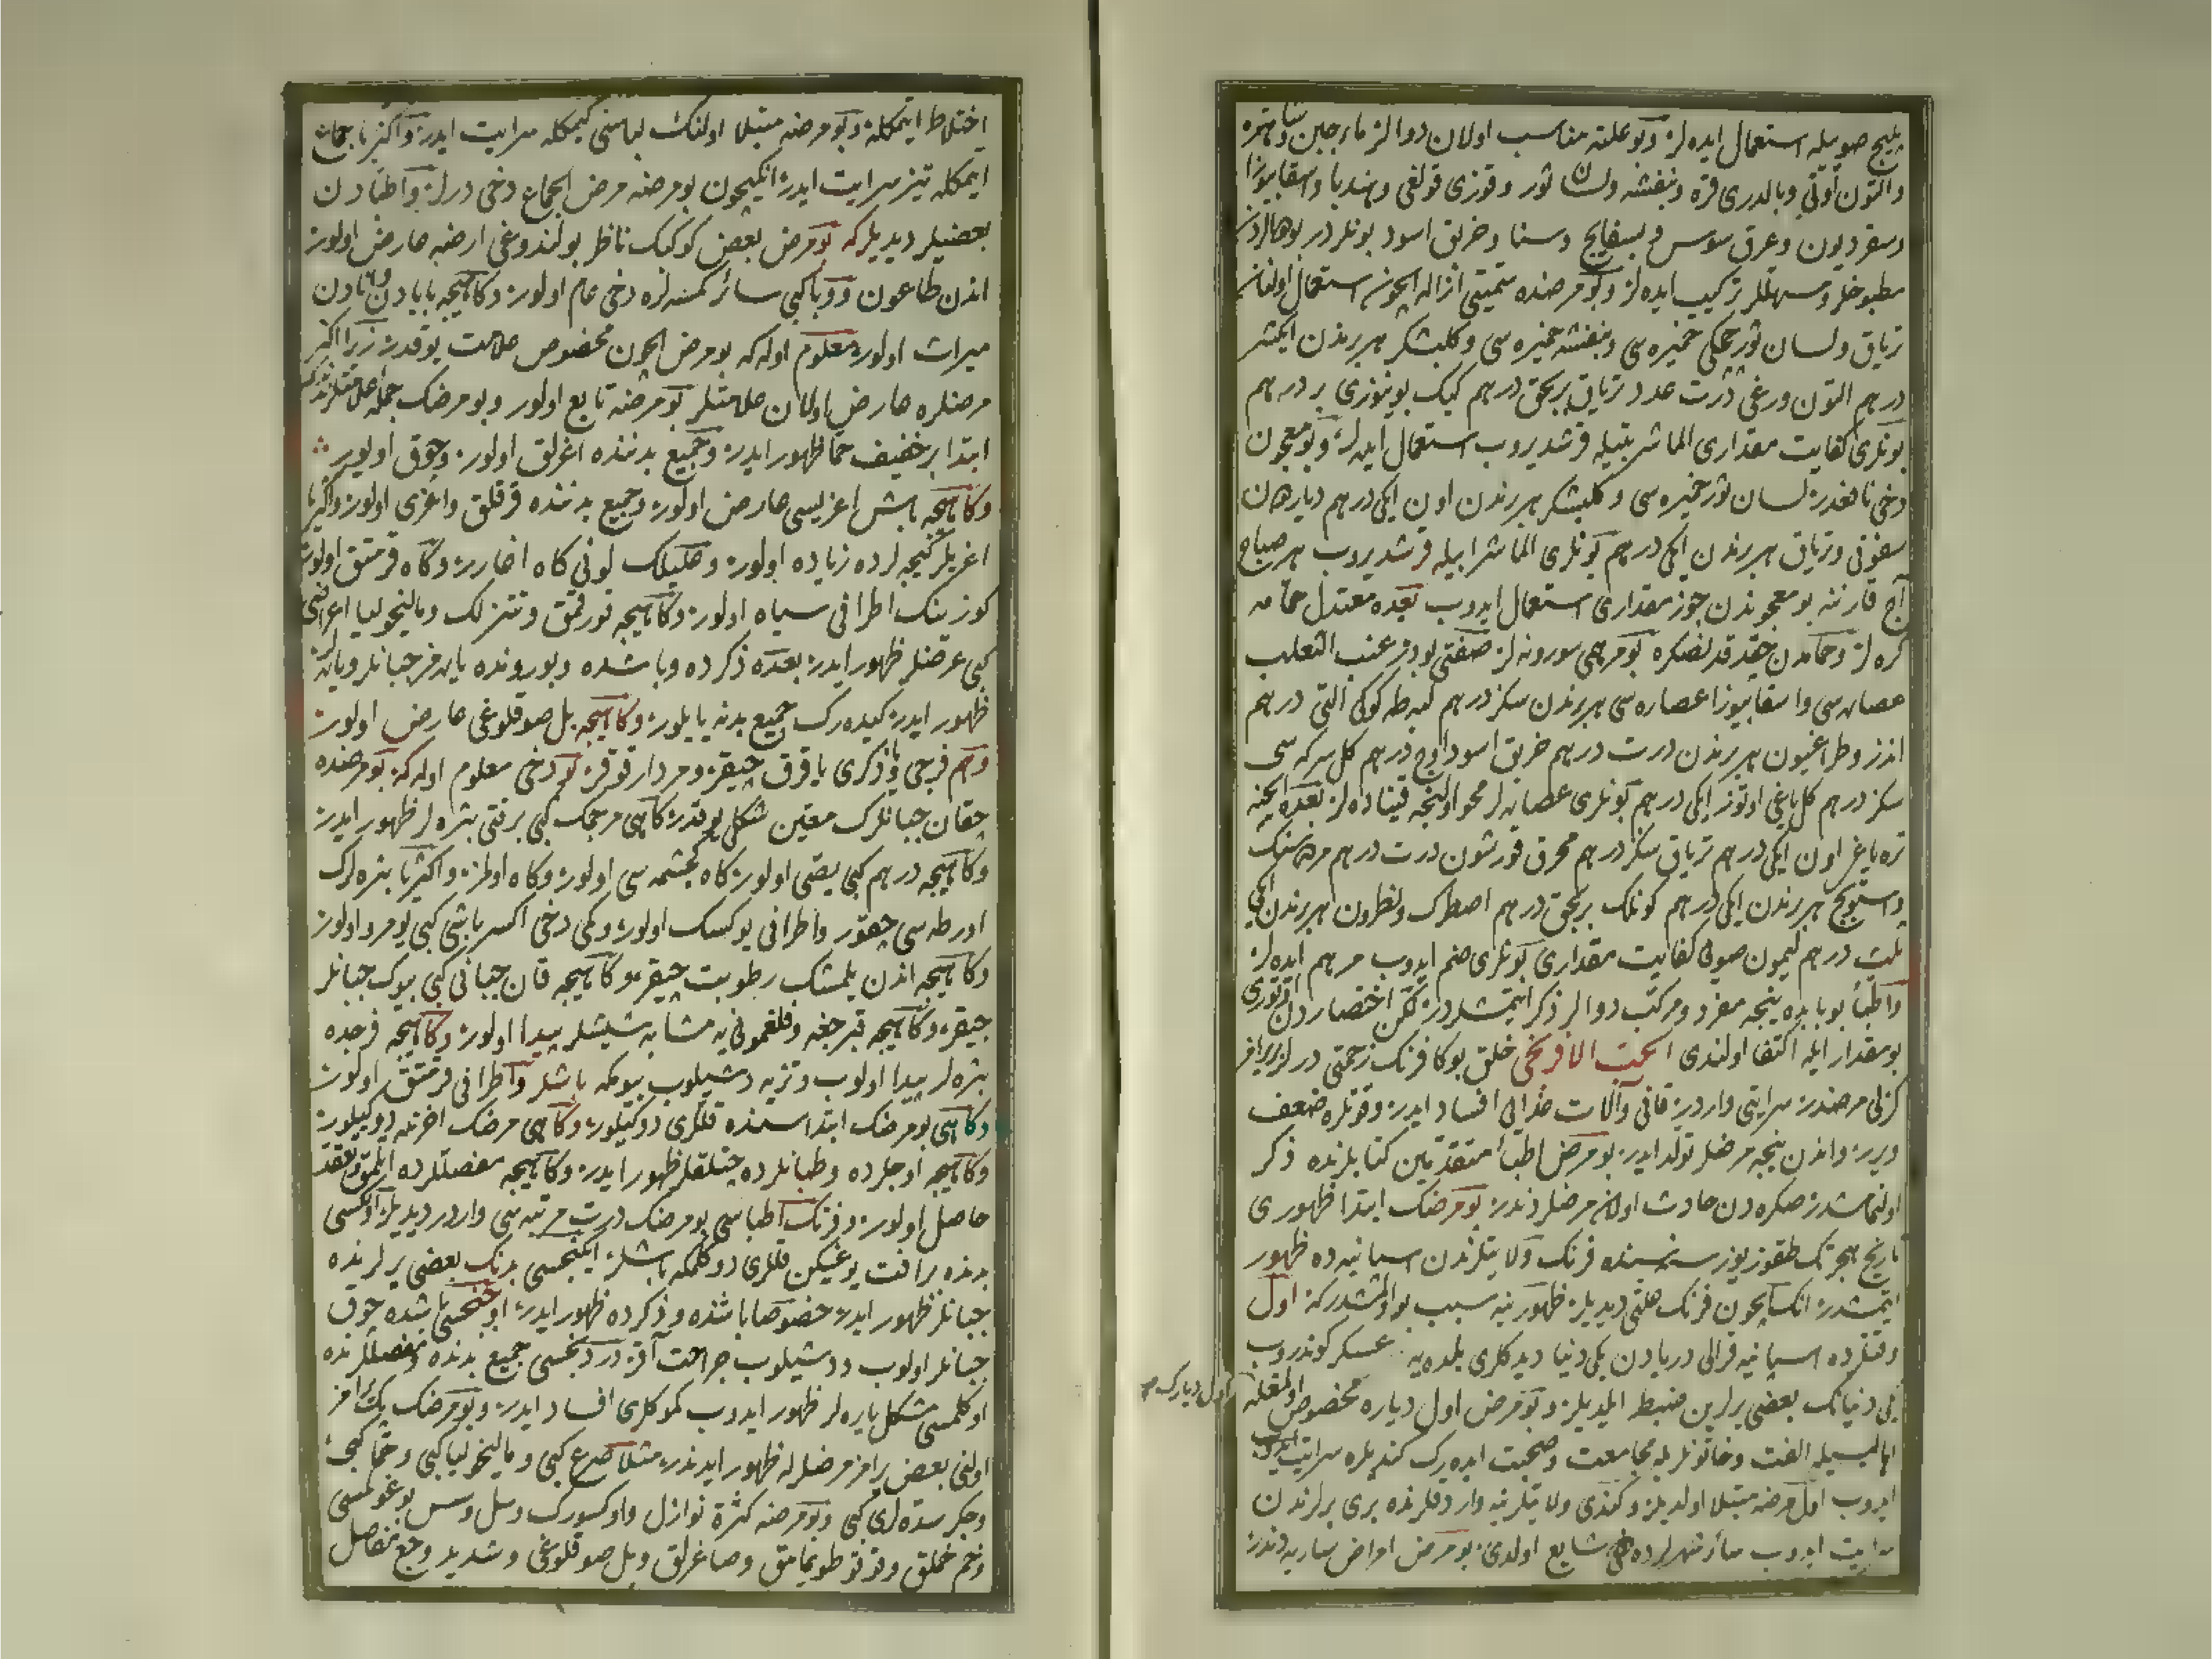 پلیج صویله استعمال ایده لر و بو علته مناسب اولان دوالر ماء جبن و شاهتره
والتون اوتی و بالدری قره و بنفشه و لسان ثور و قوزی قولغی و هندبا و اسقابیوزا
و سقوردیون و عرق سوس و بسفایج و سنا و خربق اسود بونلردر بوهالردن
مطبوخلر و مسهللر ترکیب ایده لر و بو مرضده سمیتی ازاله ایچون استعمال اولنان
تریاق و لسان ثور چیچکی خمیره سی و بنفشه خمیره سی و کلبشکر هر برندن ایکیشر
درهم التون ورغی درت عدد تریاق بر بچق درهم کیک بوینوزی بر درهم
بونلری کفایت مقداری الما شربتیله قرشدیروب استعمال ایده لر و بو معجون
دخی نافعدر لسان ثور خمیره سی و کلبشکر هر برندن اون ایکی درهم دیارهان
سفوفی و تریاق هر برندن ایکی درهم بونلری الما شرابیله قرشدیروب هر صباح
آج قارننه بو معجوندن جوز مقداری استعمال ایدوب بعده معتدل حمامه
کره لر و حمامدن چقدقدنصکره بو مرهمی سورونه لر صفتی بودر عنب الثعلب
عصاره سی و اسقابیوزا عصاره سی هر برندن سکز درهم کبه طه کوکی التی درهم
اندز و طراغیون هر برندن درت درهم خربق اسود اوچ درهم کل سرکه سی
سکز درهم کل یاغی اوتوز ایکی درهم بونلری عصاره لر محو اولنجه قیناده لر بعده ایچنه
تره یاغی اون ایکی درهم تریاق سکز درهم محرق قورشون درت درهم مرداسنک
و استوبج هر برندن ایکی درهم کونلک بر بچق درهم اصطرک و نطرون هر برندن ایکی
ثلث درهم لیمون صویی کفایت مقداری بونلری ضم ایدوب مرهم ایده لر
و اطبا بو بابده نیجه مفرد و مرکب دوالر ذکر ایتمشلردر لکن اختصاردن اوتوری
بو مقدار ایله اکتفا اولندی الحب الافرنجی خلق بوکا فرنک زحمتی درلر بر افر
کزلی مرضدر سرایتی واردر قانی و آلات غذایی افساد ایدر و قوتلره ضعف
ویرر و اندن نیجه مرضلر تولد ایدر بو مرض اطباء متقدمین کتابلرنده ذکر
اولنمامشدر صکره دن حادث اولان مرضلردندر بو مرضک ابتدا ظهوری
تاریخ هجرتک طقوز یوز سنه سنده فرنک ولایتلرندن اسپانیه ده ظهور
ایتمشدر انکایچون فرنک علتی دیدیلر ظهورینه سبب بو اولمشدرکه اول
وقتلرده اسپانیه قرالی دریادن یکی دنیا دیدکلری بلده یه عسکر کوندروب
یکی دنیانک بعضی یرلرین ضبط ایلدیلر و بو مرض اول دیاره مخصوص اولمغله
اول دیارک
اهالیسیله الفت و خاتونلریله مجامعت و صحبت ایده رک کندیلره سرایت
ایدوب اول مرضه مبتلا اولدیلر و کندی ولایتلرینه واردقلرنده بری برلرندن
سرایت ایدوب سائر شهرلرده دخی شایع اولدی بو مرض امراض ساریه دندر
اختلاط ایتمکله و بو مرضه مبتلا اولنک لباسنی کیمکله سرایت ایدر و اکثریا جماع
ایتمکله تیز سرایت ایدر انکیچون بو مرضه مرض الجماع دخی درلر و اطبادن
بعضیلر دیدیلرکه بو مرض بعض کوکبک ناظر بولندوغی ارضه عارض اولور
اندن طاعون و وبا کبی سائر کمسنه لره دخی عام اولور و کاهیجه بابادن و انادن
میراث اولور معلوم اوله که بو مرض ایچون مخصوص علامت یوقدر زیرا اکثر
مرضلره عارض اولان علامتلر بو مرضه تابع اولور و بو مرضک جمله علامتلرندندرکه
ابتدا بر خفیف حما ظهور ایدر و جمیع بدننده اغرلق اولور و چوق اویور
و کاهیجه باش اغریسی عارض اولور و جمیع بدننده قرقلق و اغری اولور و اکثریا
اغریلر کیجه لرده زیاده اولور و علیلک لونی کاه اصارر و کاه قرمتق اولور
کوزینک اطرافی سیاه اولور و کاهیجه قورقمق و تنزلک و مالیخولیا اعراضی
کبی عرضلر ظهور ایدر بعده ذکرده و باشده و بورونده یاره لر چبانلر و یاره لر
ظهور ایدر کیده رک جمیع بدنه یاییلور و کاهیجه بل صوقلوغی عارض اولور
و هم فرجی و ذکری یاقرق چیقر و مردار قوقر بو دخی معلوم اوله که بو مرضده
چقان چبانلرک معین شکلی یوقدر کاهی مرجمک کبی برقتی بثره لر ظهور ایدر
و کاهیجه درهم کبی یصی اولور کاه کجشمه سی اولور و کاه اولمز و اکثریا بثره لرک
اورطه سی چقور و اطرافی یوکسک اولور و کمی دخی اکسر باشی کبی یومرو اولور
و کاهیجه اندن یلمشک رطوبت چیقر و کاهیجه قان چبانی کبی بیوک چبانلر
چیقر و کاهیجه قبرجغه و فلغمونی یه مشابه شیشلر پیدا اولور و کاهیجه فرجده
بثره لر پیدا اولوب و تزیه دشیلوب بیومکه باشلر و اطرافی قرمتق اولور
و کاهی بو مرضک ابتداسنده قللری دوکیلور و کاهی مرضک اخرنده دوکیلور
و کاهیجه اوجلرده و طبانلرده چتلقلر ظهور ایدر و کاهیجه مفصللرده ایلمق و عقد
حاصل اولور و فرنک اطباسی بو مرضک درت مرتبه سی واردر دیدیلر اولکسی
بدنده بر افت یوغیکن قللری دوکلمکه باشلر ایکنجیسی بدنک بعضی یرلرنده
چبانلر ظهور ایدر خصوصا باشده و ذکرده ظهور ایدر اوچنجیسی باشده چوق
چبانلر اولوب و دشیلوب جراحت آقر دردنجیسی جمیع بدنده و مفصللرنده
اوکلمسی مشکل یاره لر ظهور ایدوب کموکلری افساد ایدر و بو مرضک پک امز
اولنی بعض یرامز مرضلر له ظهور ایدندر مثلا صرع کبی و مالیخولیا کبی و حما کبی
و جکر سده لری کبی و بو مرضه کثرة نوازل و اوکسورک و سل و سس بوغولمسی
و خم خملق و توتو طویمامق و صاغرلق و بل صوقلوغی و شدید وجع مفاصل